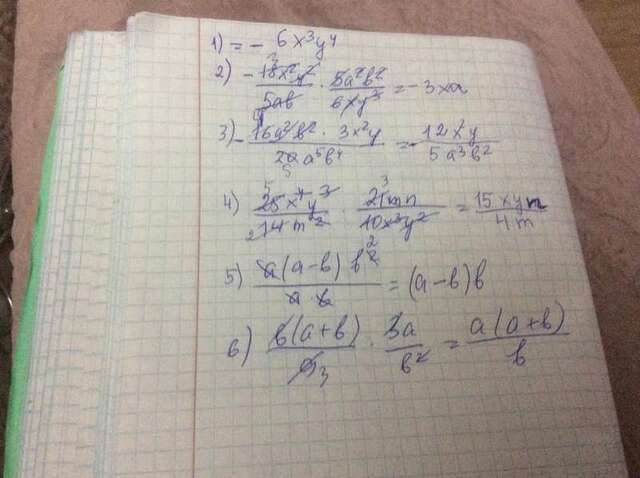 1) = - 6x³y⁴
2) - 18x²y²/5ab · 5a²b²/6xy³ = -3xa
3) - 16a²b² · 3x²y / 20a⁵b⁴ = - 12x²y/5a³b²
4) 25x⁴y³/14m² · 21mn/10x³y² = 15xyn/4m
5) a(a-b) b²/a b = (a-b)b
6) b(a+b)/3 · 3a/b² = a(a+b)/b